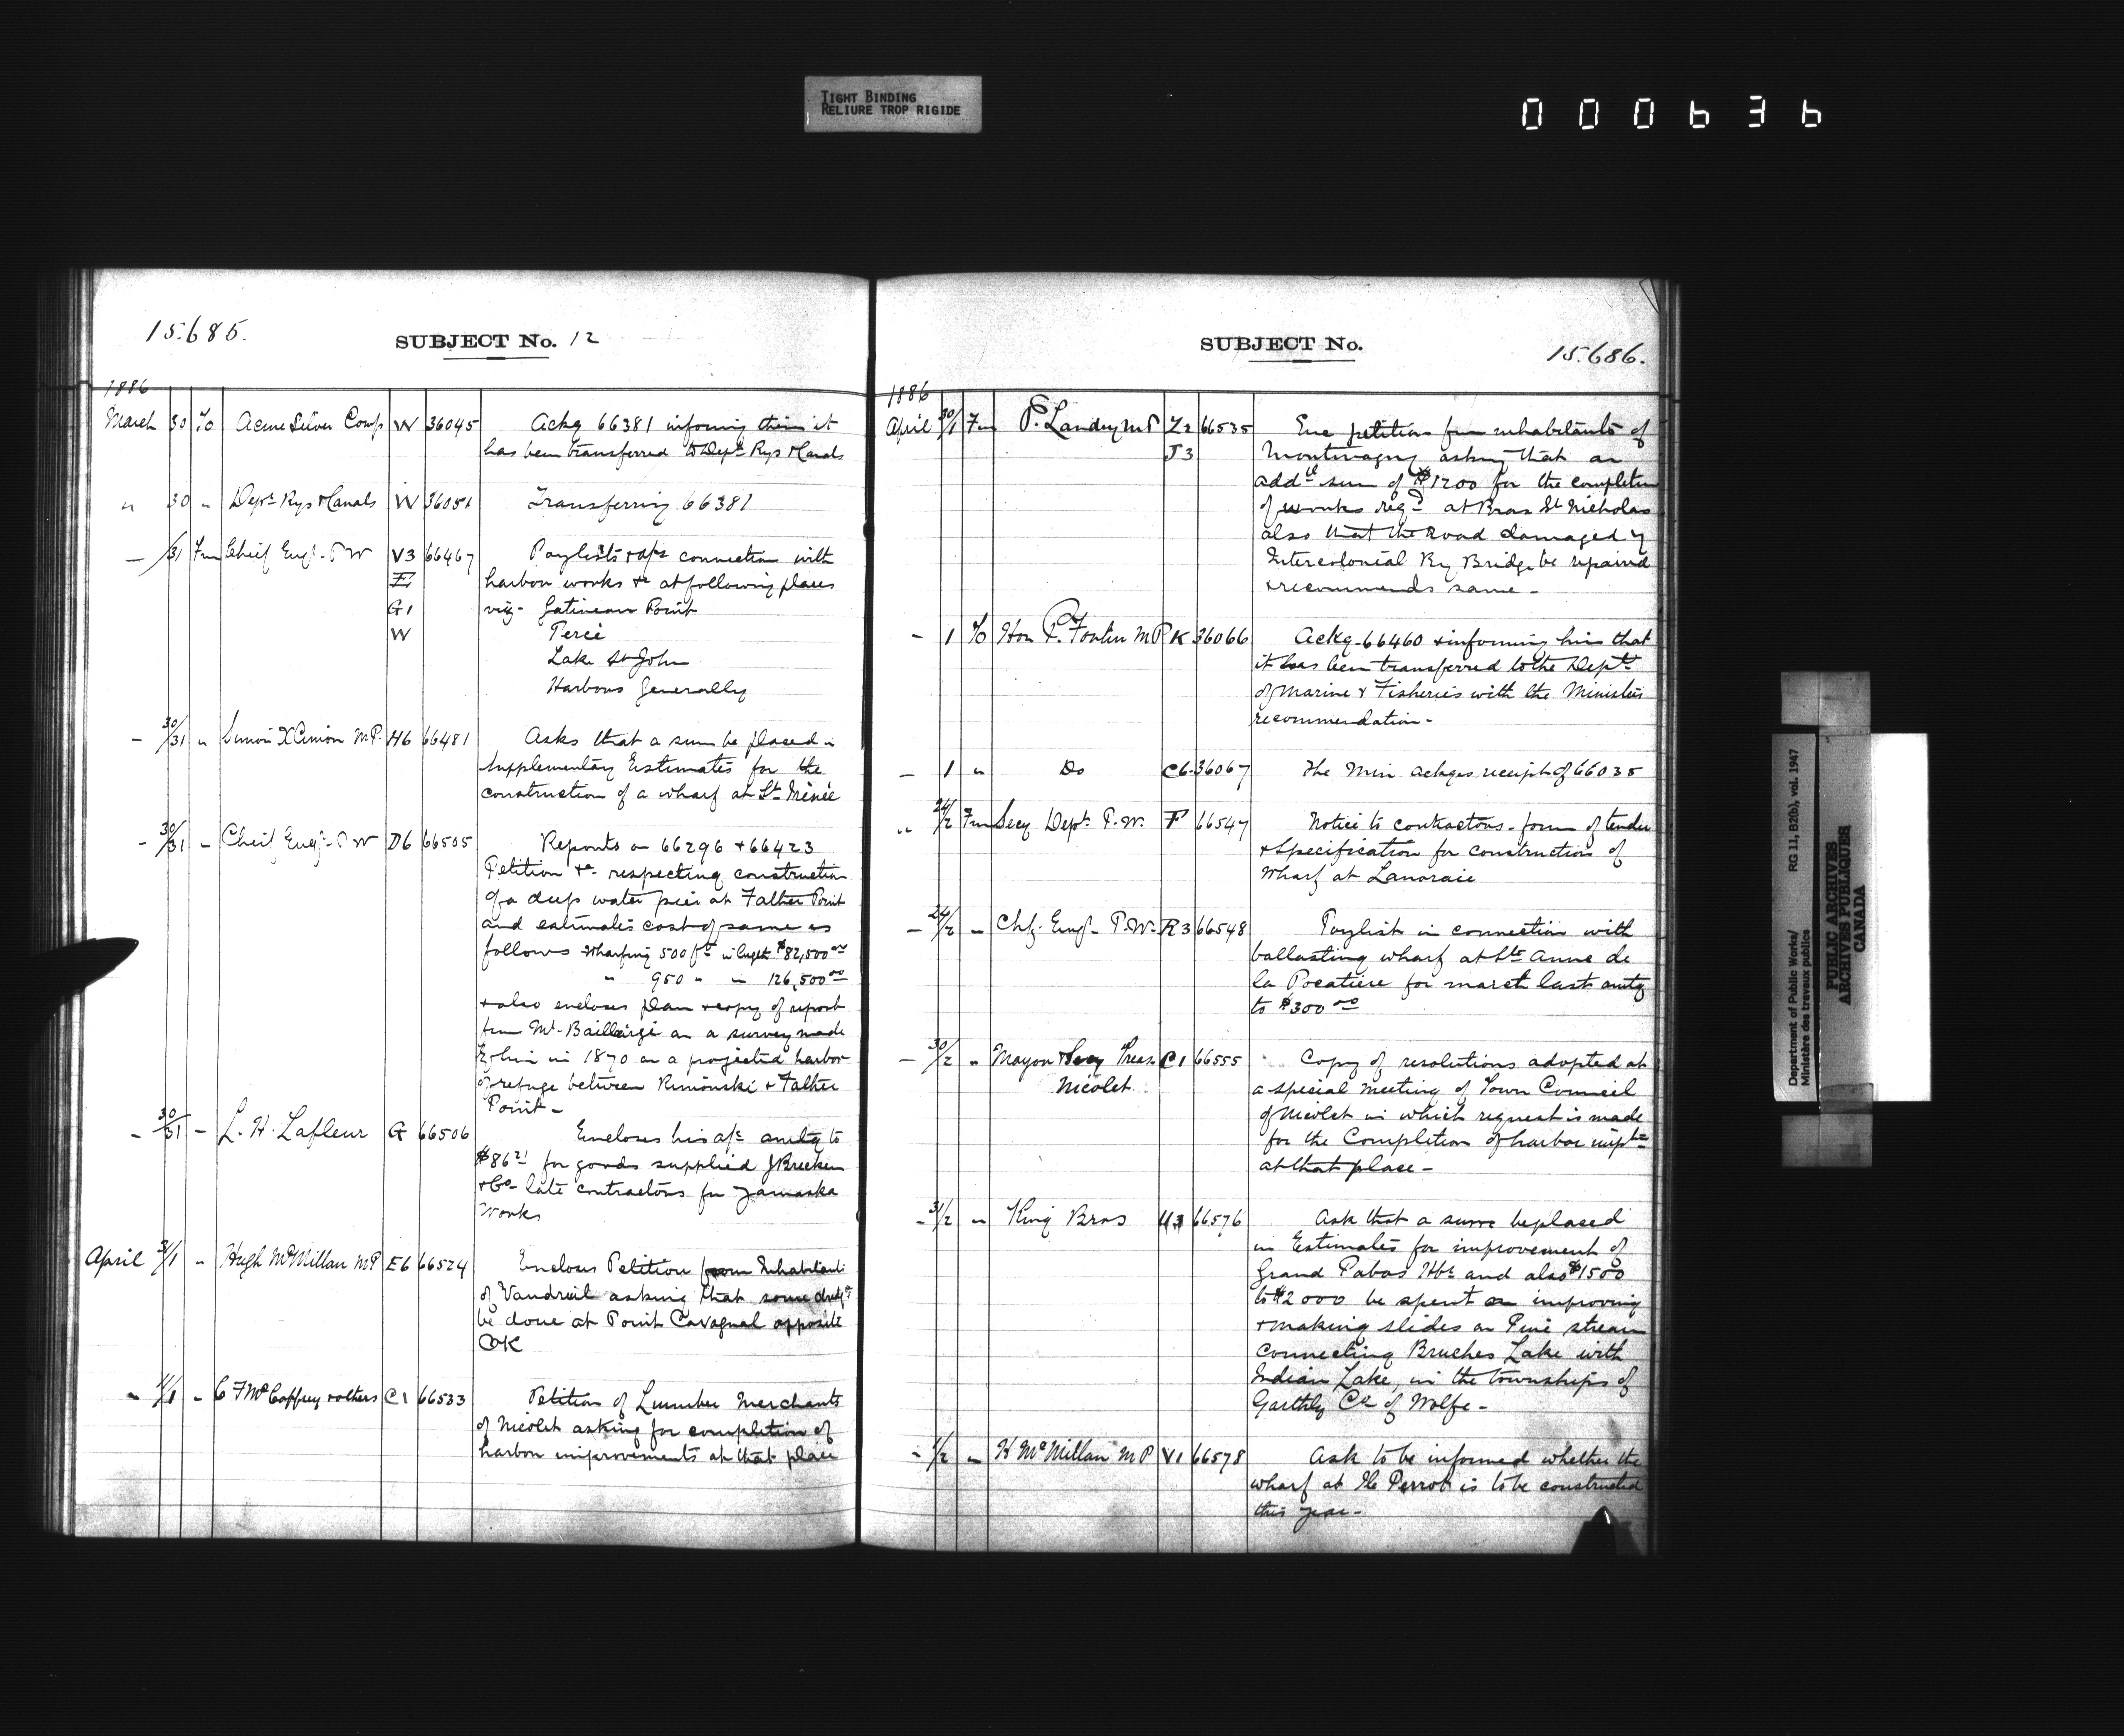 TIGHT BINDING
RELIURE TROP RIGIDE
000636
15.685.
SUBJECT No. 12
1886
March 30 To Acme Silver Comp W 36045 Ackg 66381 informing them it
has been transferred to Dept Rys & Canals
" 30 " Dept Rys & Canals W 36051 Transferring 66381
- /31 Fm Chief Engr P W V3 66467 Paylists & a/cs connection with
E harbor works &c at following places
G1 viz- Gatineau Point
W Percé
Lake St John
Harbors Generally
- 30/31 " Simon X Cimon M.P. H6 66481 Asks that a sum be placed in
Supplementary Estimates for the
construction of a wharf at St Irénée
- 30/31 - Cheif Engr P W D6 66505 Reports on 66296 & 66423
Petition &c respecting construction
of a deep water pier at Father Point
and estimates cost of same as
follows Wharfing 500 ft in length $82,500 00
" 950 " " 126,500 00
& also encloses plan & copy of report
from Mr Baillairgé on a survey made
by him in 1870 on a projected harbor
of refuge between Rimouski & Father
Point -
- 30/31 - L. H. Lafleur G 66506 Encloses his a/c amtg to
$86 21 for goods supplied J Brecken
& Co- late contractors for Yamaska
Works
April 31/1 " Hugh McMillan MP E6 66524 Encloses Petition from Inhabitants
of Vaudreuil asking that some dredg
be done at Point Cavagnal opposite
Oka
" 1/1 " C F McCaffrey & others C1 66533 Petition of Lumber Merchants
of Nicolet asking for completion of
harbor improvements at that place
SUBJECT No.
15.686.
1886
April 30/1 Fm P. Landry M P Z2 66535 Enc petition from inhabitants of
J3 Montmagny asking that an
addl sum of $1200 for the completion
of works reqd at Bras St Nicholas
also that the Road damaged by
Intercolonial Ry Bridge be repaired
& recommends same -
- 1 To Hon P. Fortin M P K 36066 Ackg 66460 & informing him that
it has been transferred to the Dept
of Marine & Fisheries with the Ministers
recommendation -
- 1 " Do C6 36067 The Min ackges receipt of 66035
" 24/2 Fm Secy Dept P.W. F 66547 Notice to contractors - form of tender
& Specification for construction of
Wharf at Lanoraie
- 24/2 " Chf. Engr P.W. R3 66548 Paylist in connection with
ballasting wharf at Ste Anne de
la Pocatiere for march last amtg
to $300 00
- 30/2 " Mayor & Secy Treas C1 66555 Copy of resolutions adopted at
Nicolet a special meeting of Town Council
of Nicolet in which request is made
for the Completion of harbor impts
at that place -
- 31/2 " King Bros U3 66576 Ask that a sum be placed
in Estimates for improvement of
Grand Pabos Hbr and also $1500
to $2000 be spent on improving
& making slides on Pine stream
connecting Bruches Lake with
Indian Lake, in the townships of
Garthby Co of Wolfe -
- 1/2 " H McMillan M P V1 66578 Ask to be informed whether the
wharf at Ile Perrot is to be constructed
this year -
Department of Public Works/ RG 11, B2(b), vol. 1947
Ministère des travaux publics
PUBLIC ARCHIVES
ARCHIVES PUBLIQUES
CANADA